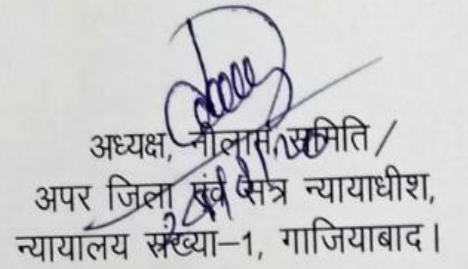 अध्यक्ष, नीलामी समिति /
अपर जिला एवं सत्र न्यायाधीश,
न्यायालय संख्या-1, गाजियाबाद।